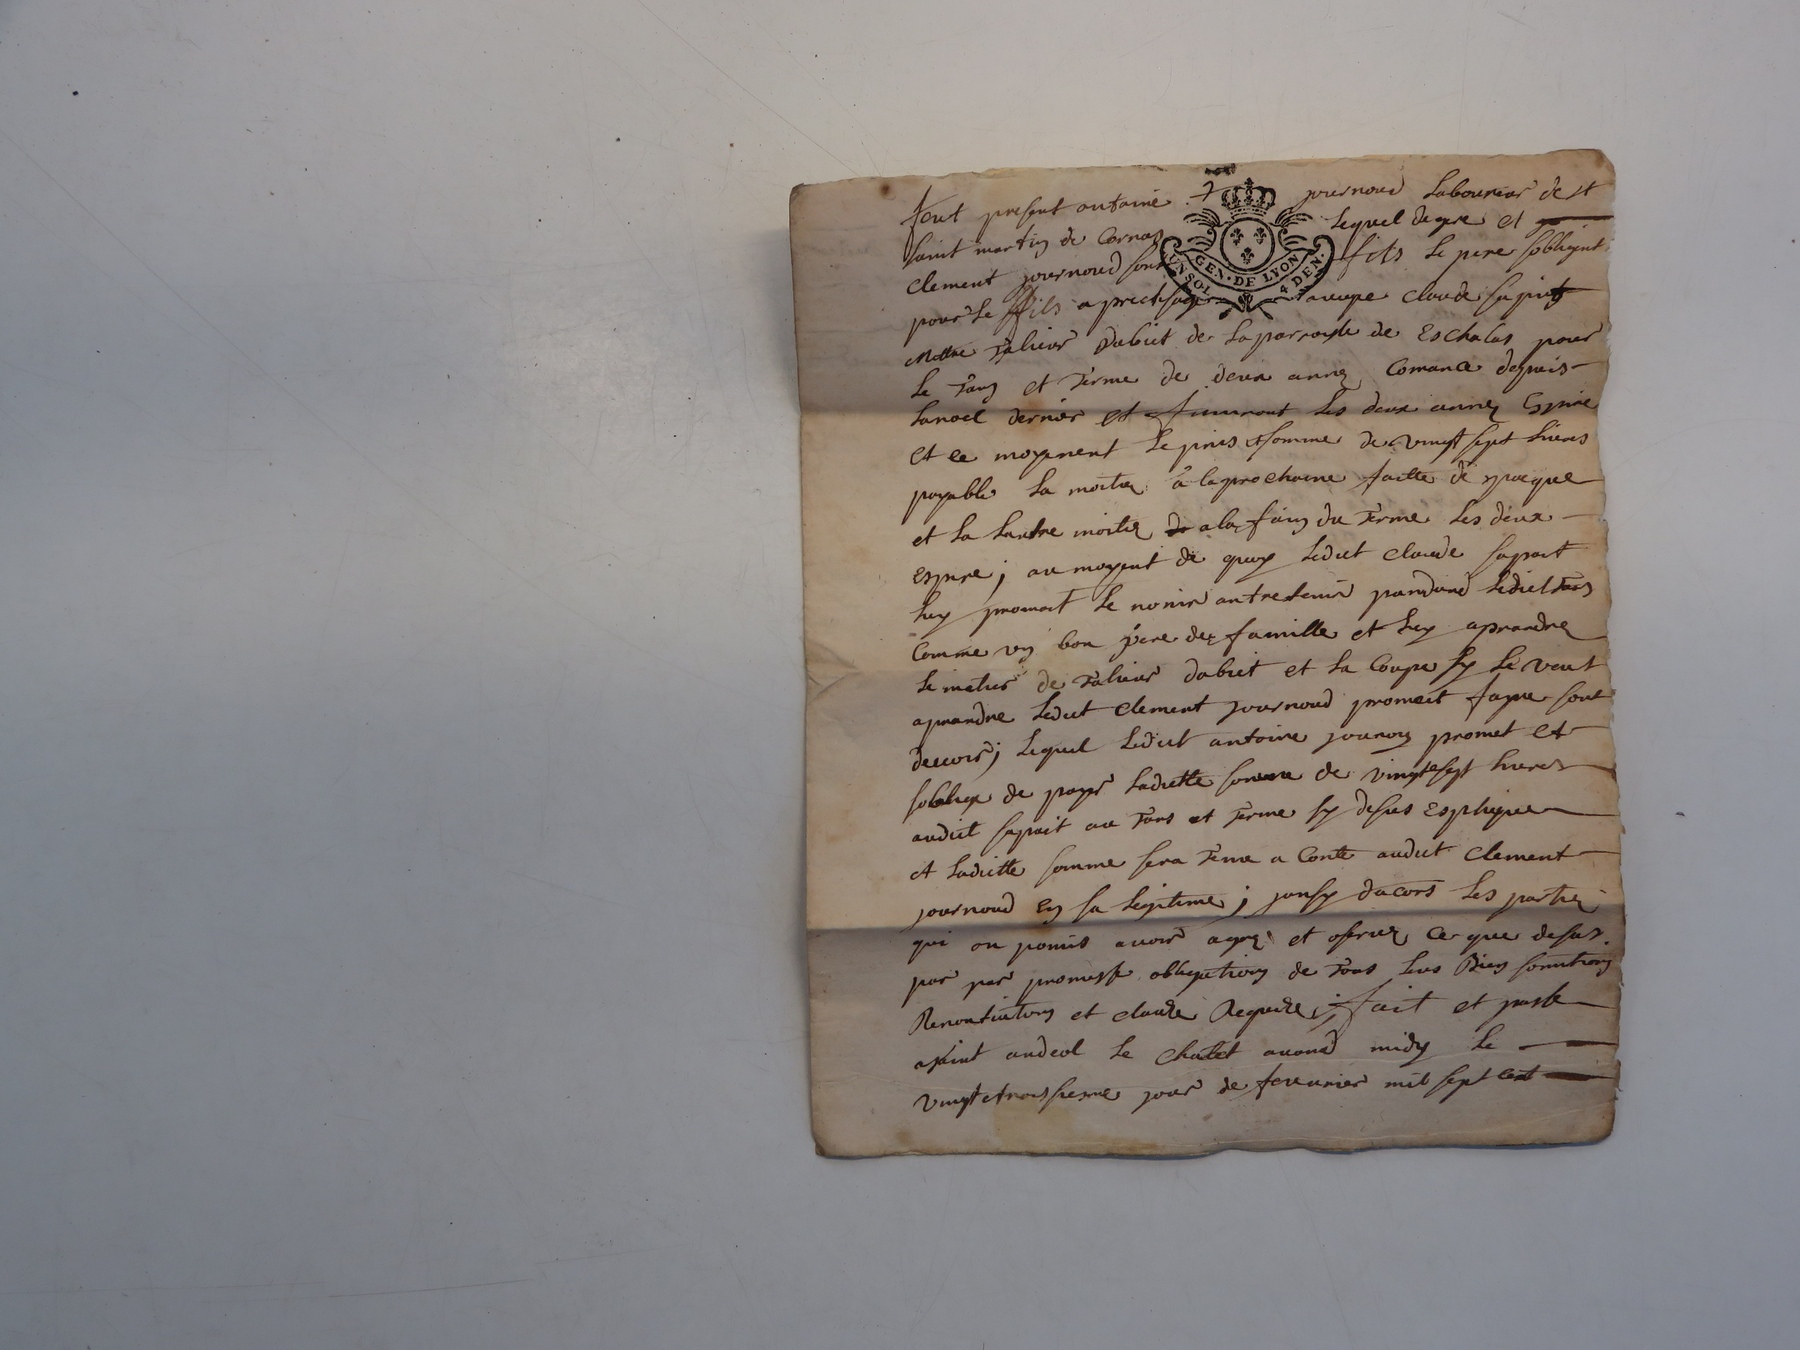 feut present antoine journoud Laboureur de st
saint martin de Cornas Lequel degre et
clement journoud sont fils Le pere soblijant
pour Le fils aprectisage aveque claude sapait
Mettre Talieur Dabiet de La parroysse de Eschalas pour
Le Tans et Terme de deux annez Comance depuis
Lanoel dernier et finiront Les deux annez Espire
et ce moyenent Le pris et somme de vingt sept Livres
payable La moitiez a la prochaine faitte de pacque
et La Lautre moitiez a la fain du Terme Les deux
espire; au moyent de quoy Ledict claude sapait
Luy promait Le norir antretenir pandand Ledict Tans
Comme un bon pere de famille et Luy aprandre
Le metier de Talieur dabiet et La Coupe sy Le veut
aprandre Ledict clement journoud promait faire sont
devoir; Lequel Ledict antoine journoy promet et
soblige de payer Ladictte somme de vingt sept Livres
audict sapait au Tans et Terme sy desus esplique
et Ladictte somme sera Tenue a Conte audict clement
journoud en sa Legitime; jansy dacors Les partiez
qui on pomis avoir agrez et oserver ce que desus
par par promesse obligations de Tous Leus Biens somitions
Renontiations et clause Requise; fait et passe
a saint andeol Le chatet avand midy Le
vingt et troissiesme jour de feuvrier mil sept cent
GEN · DE LYON
UN SOL 4 DEN ·